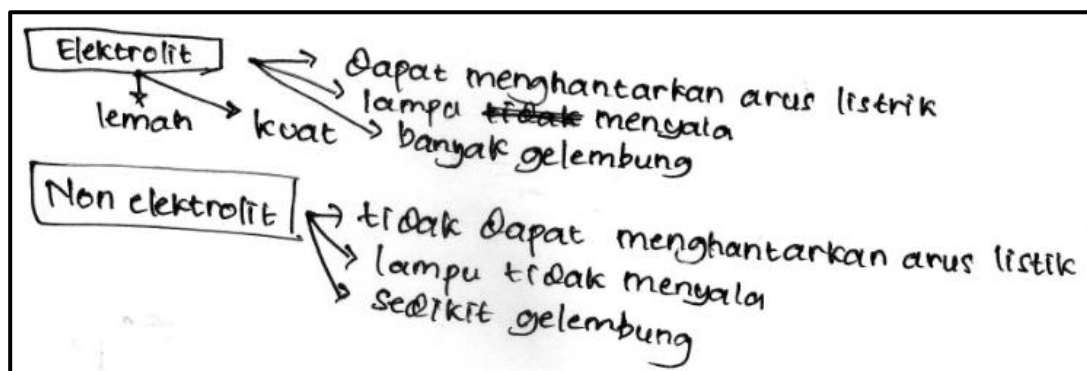 Elektrolit
Dapat menghantarkan arus listrik
lampu tidak menyala
banyak gelembung
lemah
kuat
Non elektrolit
tidak Dapat menghantarkan arus listik
lampu tidak menyala
sedikit gelembung